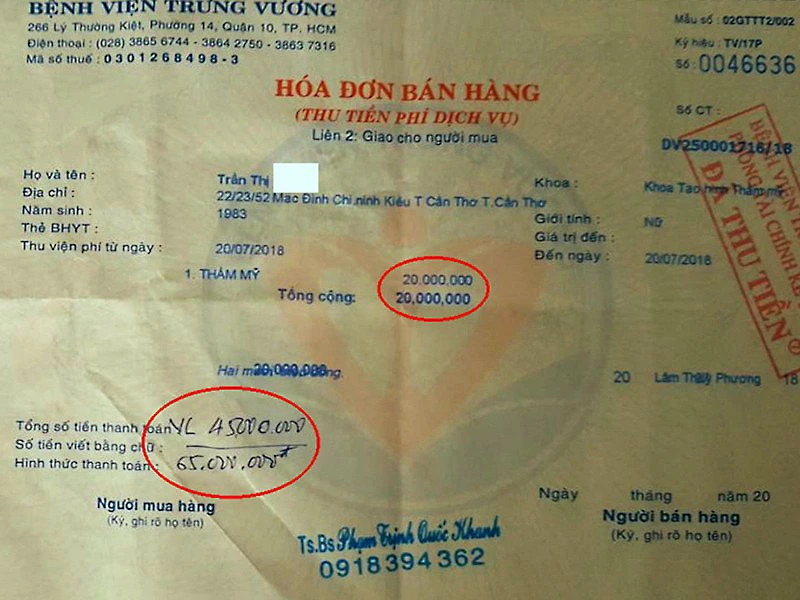 BỆNH VIỆN TRƯNG VƯƠNG
266 Lý Thường Kiệt, Phường 14, Quận 10, TP. HCM
Điện thoại : (028) 3865 6744 - 3864 2750 - 3863 7316
Mã số thuế : 0301268498-3
Mẫu số : 02GTTT2/002
Ký hiệu : TV/17P
Số : 0046636
HÓA ĐƠN BÁN HÀNG
(THU TIỀN PHÍ DỊCH VỤ)
Liên 2: Giao cho người mua
Số CT :
DV250001716/18
BỆNH VIỆN
PHÒNG TÀI CHÍNH KẾ
ĐÃ THU TIỀN
Họ và tên : Trần Thị
Khoa : Khoa Tạo hình Thẩm mỹ
Địa chỉ : 22/23/52 Mạc Đỉnh Chi.ninh Kiều T Cần Thơ T.Cần Thơ
Năm sinh : 1983
Giới tính : Nữ
Thẻ BHYT :
Giá trị đến :
Thu viện phí từ ngày : 20/07/2018
Đến ngày : 20/07/2018
1. THẨM MỸ 20,000,000
Tổng cộng: 20,000,000
Hai mươi triệu đồng.
20,000,000
20 Lâm Thúy Phương 18
Tổng số tiền thanh toán VL 45.000.000
Số tiền viết bằng chữ :
Hình thức thanh toán : 65.000.000đ
Người mua hàng
(Ký, ghi rõ họ tên)
Ngày tháng năm 20
Người bán hàng
(Ký, ghi rõ họ tên)
Ts.Bs Phạm Trịnh Quốc Khanh
0918394362